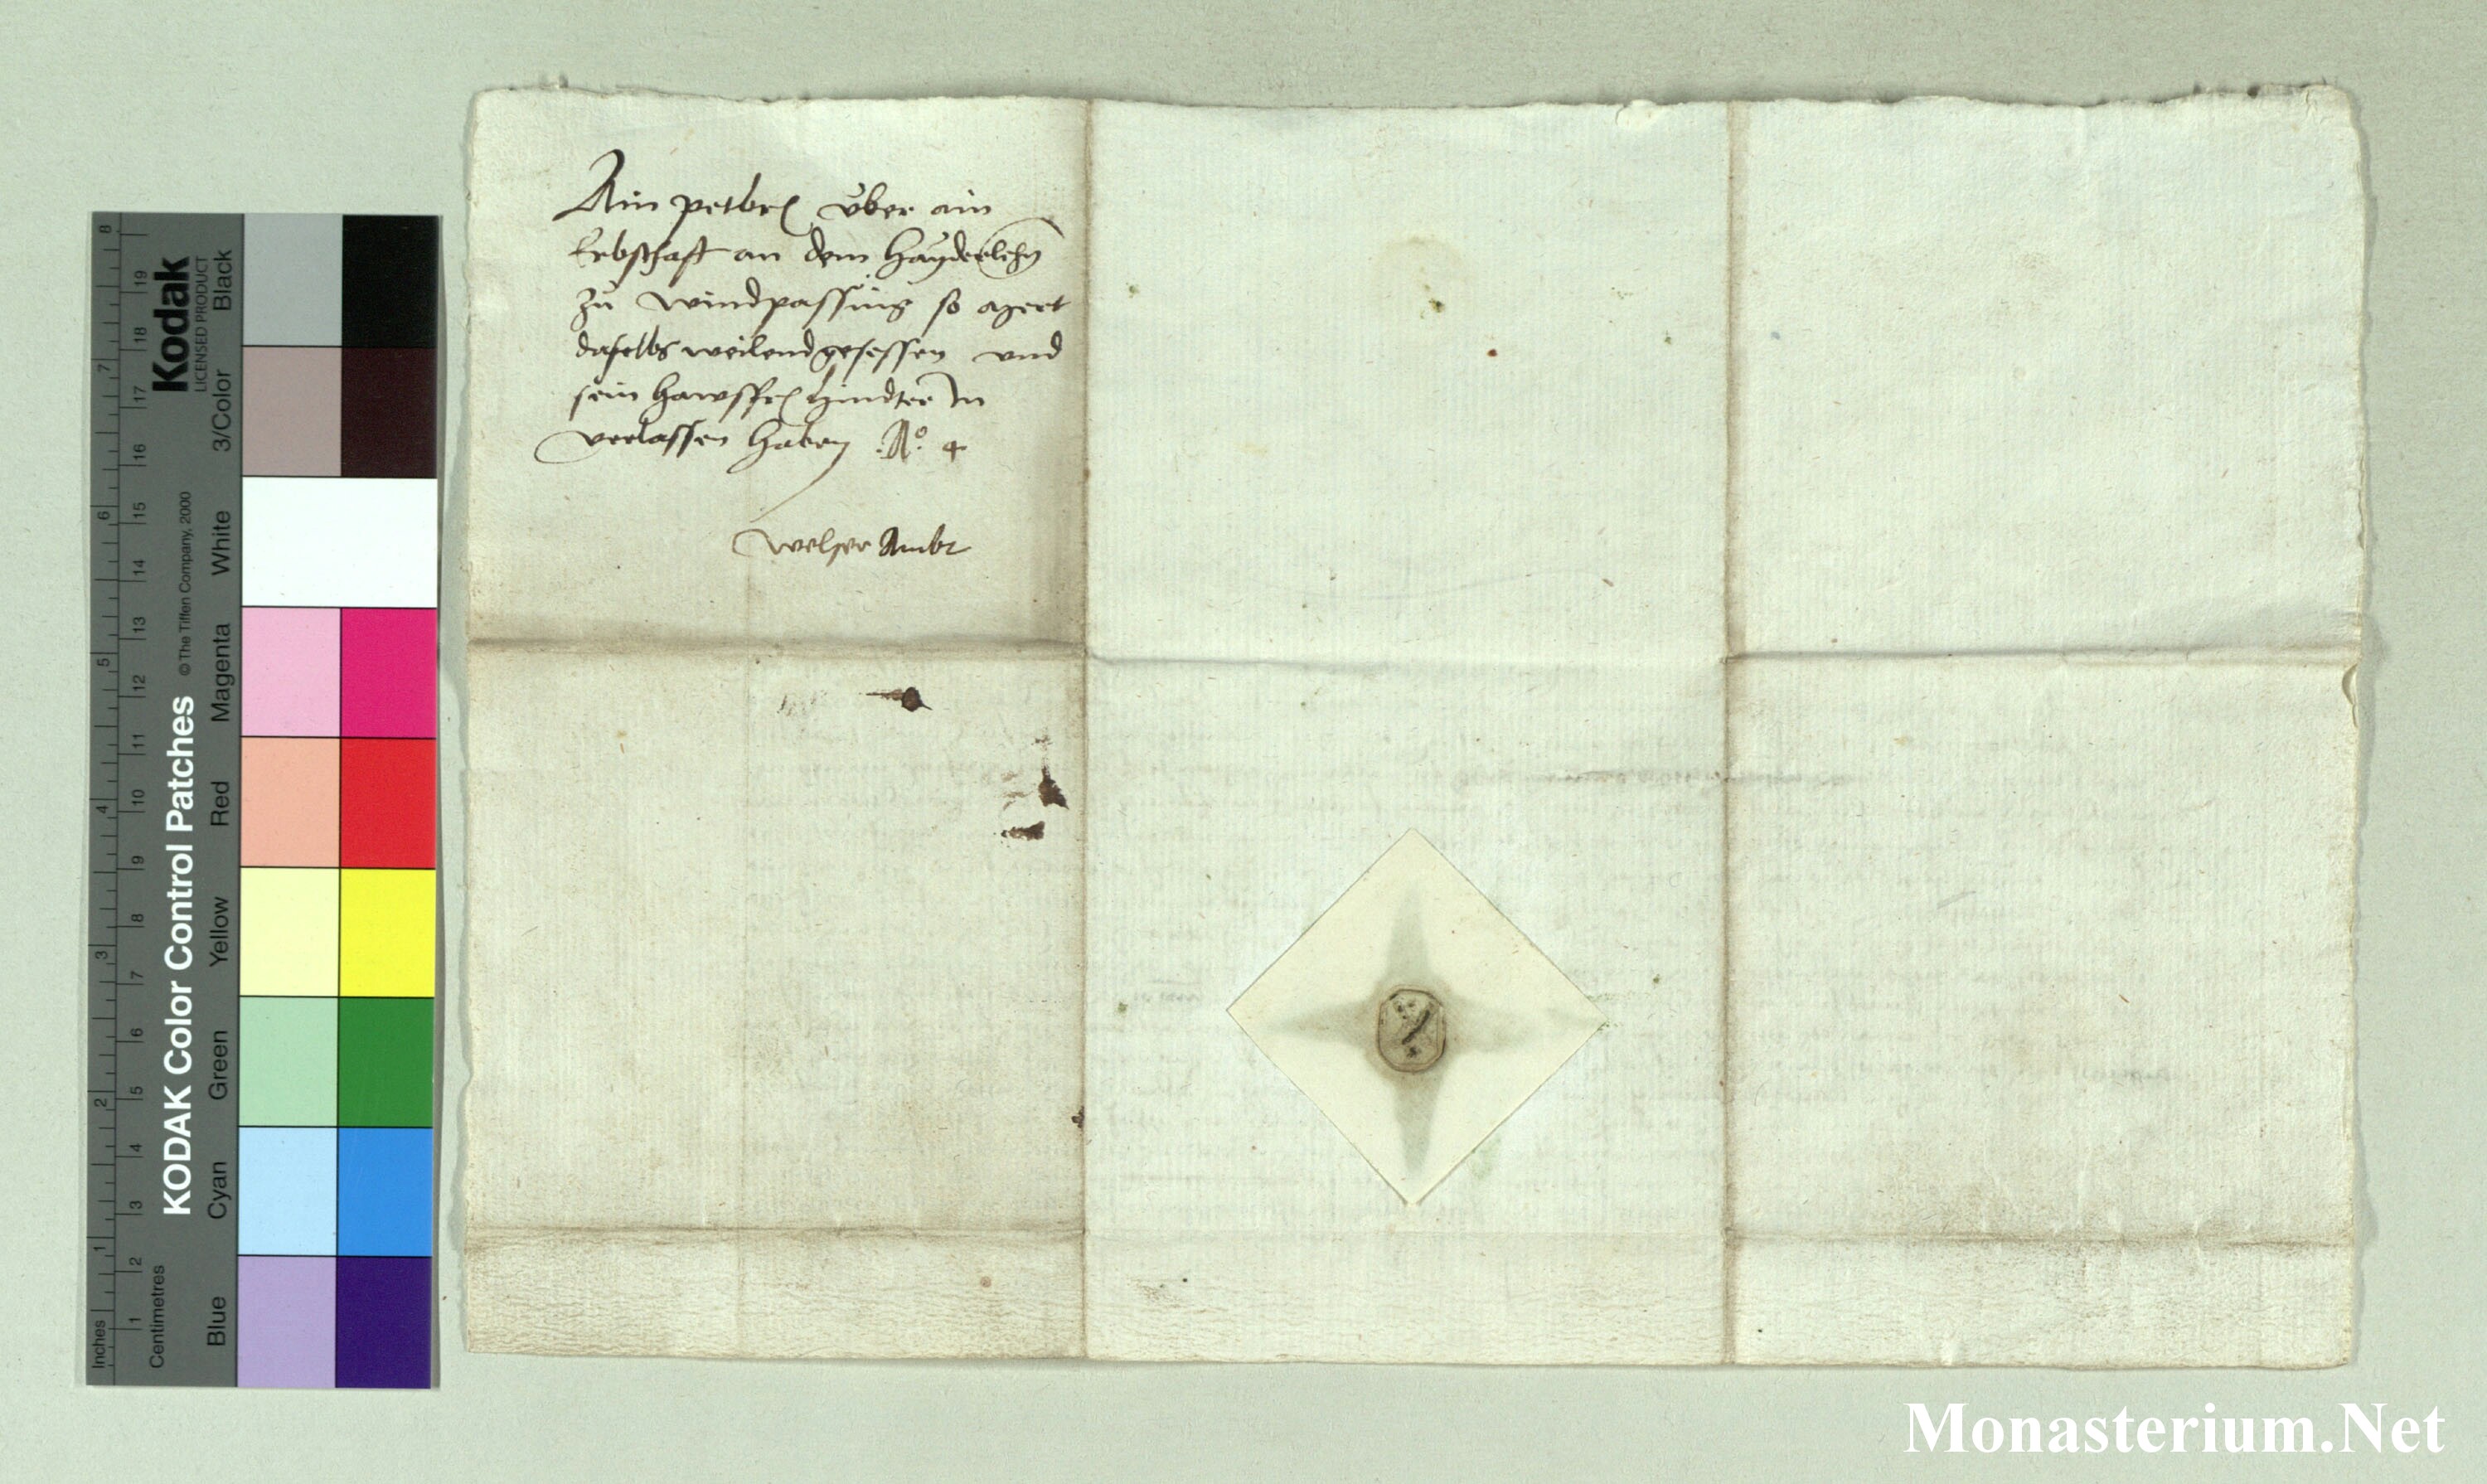 Ain petbrf über ain
Erbschafft an dem Hayderlehn
zu Windpassing so
daselbs weilend gesessen vnd
sein hawsfr hindter In
verlassen haben .Aº. 4
Welser Ambt
Kodak
LICENSED PRODUCT
KODAK Color Control Patches
© The Tiffen Company, 2000
Black
3/Color
White
Magenta
Red
Yellow
Green
Cyan
Blue
Inches
1 2 3 4 5 6 7 8
Centimetres
1 2 3 4 5 6 7 8 9 10 11 12 13 14 15 16 17 18 19
Monasterium.Net